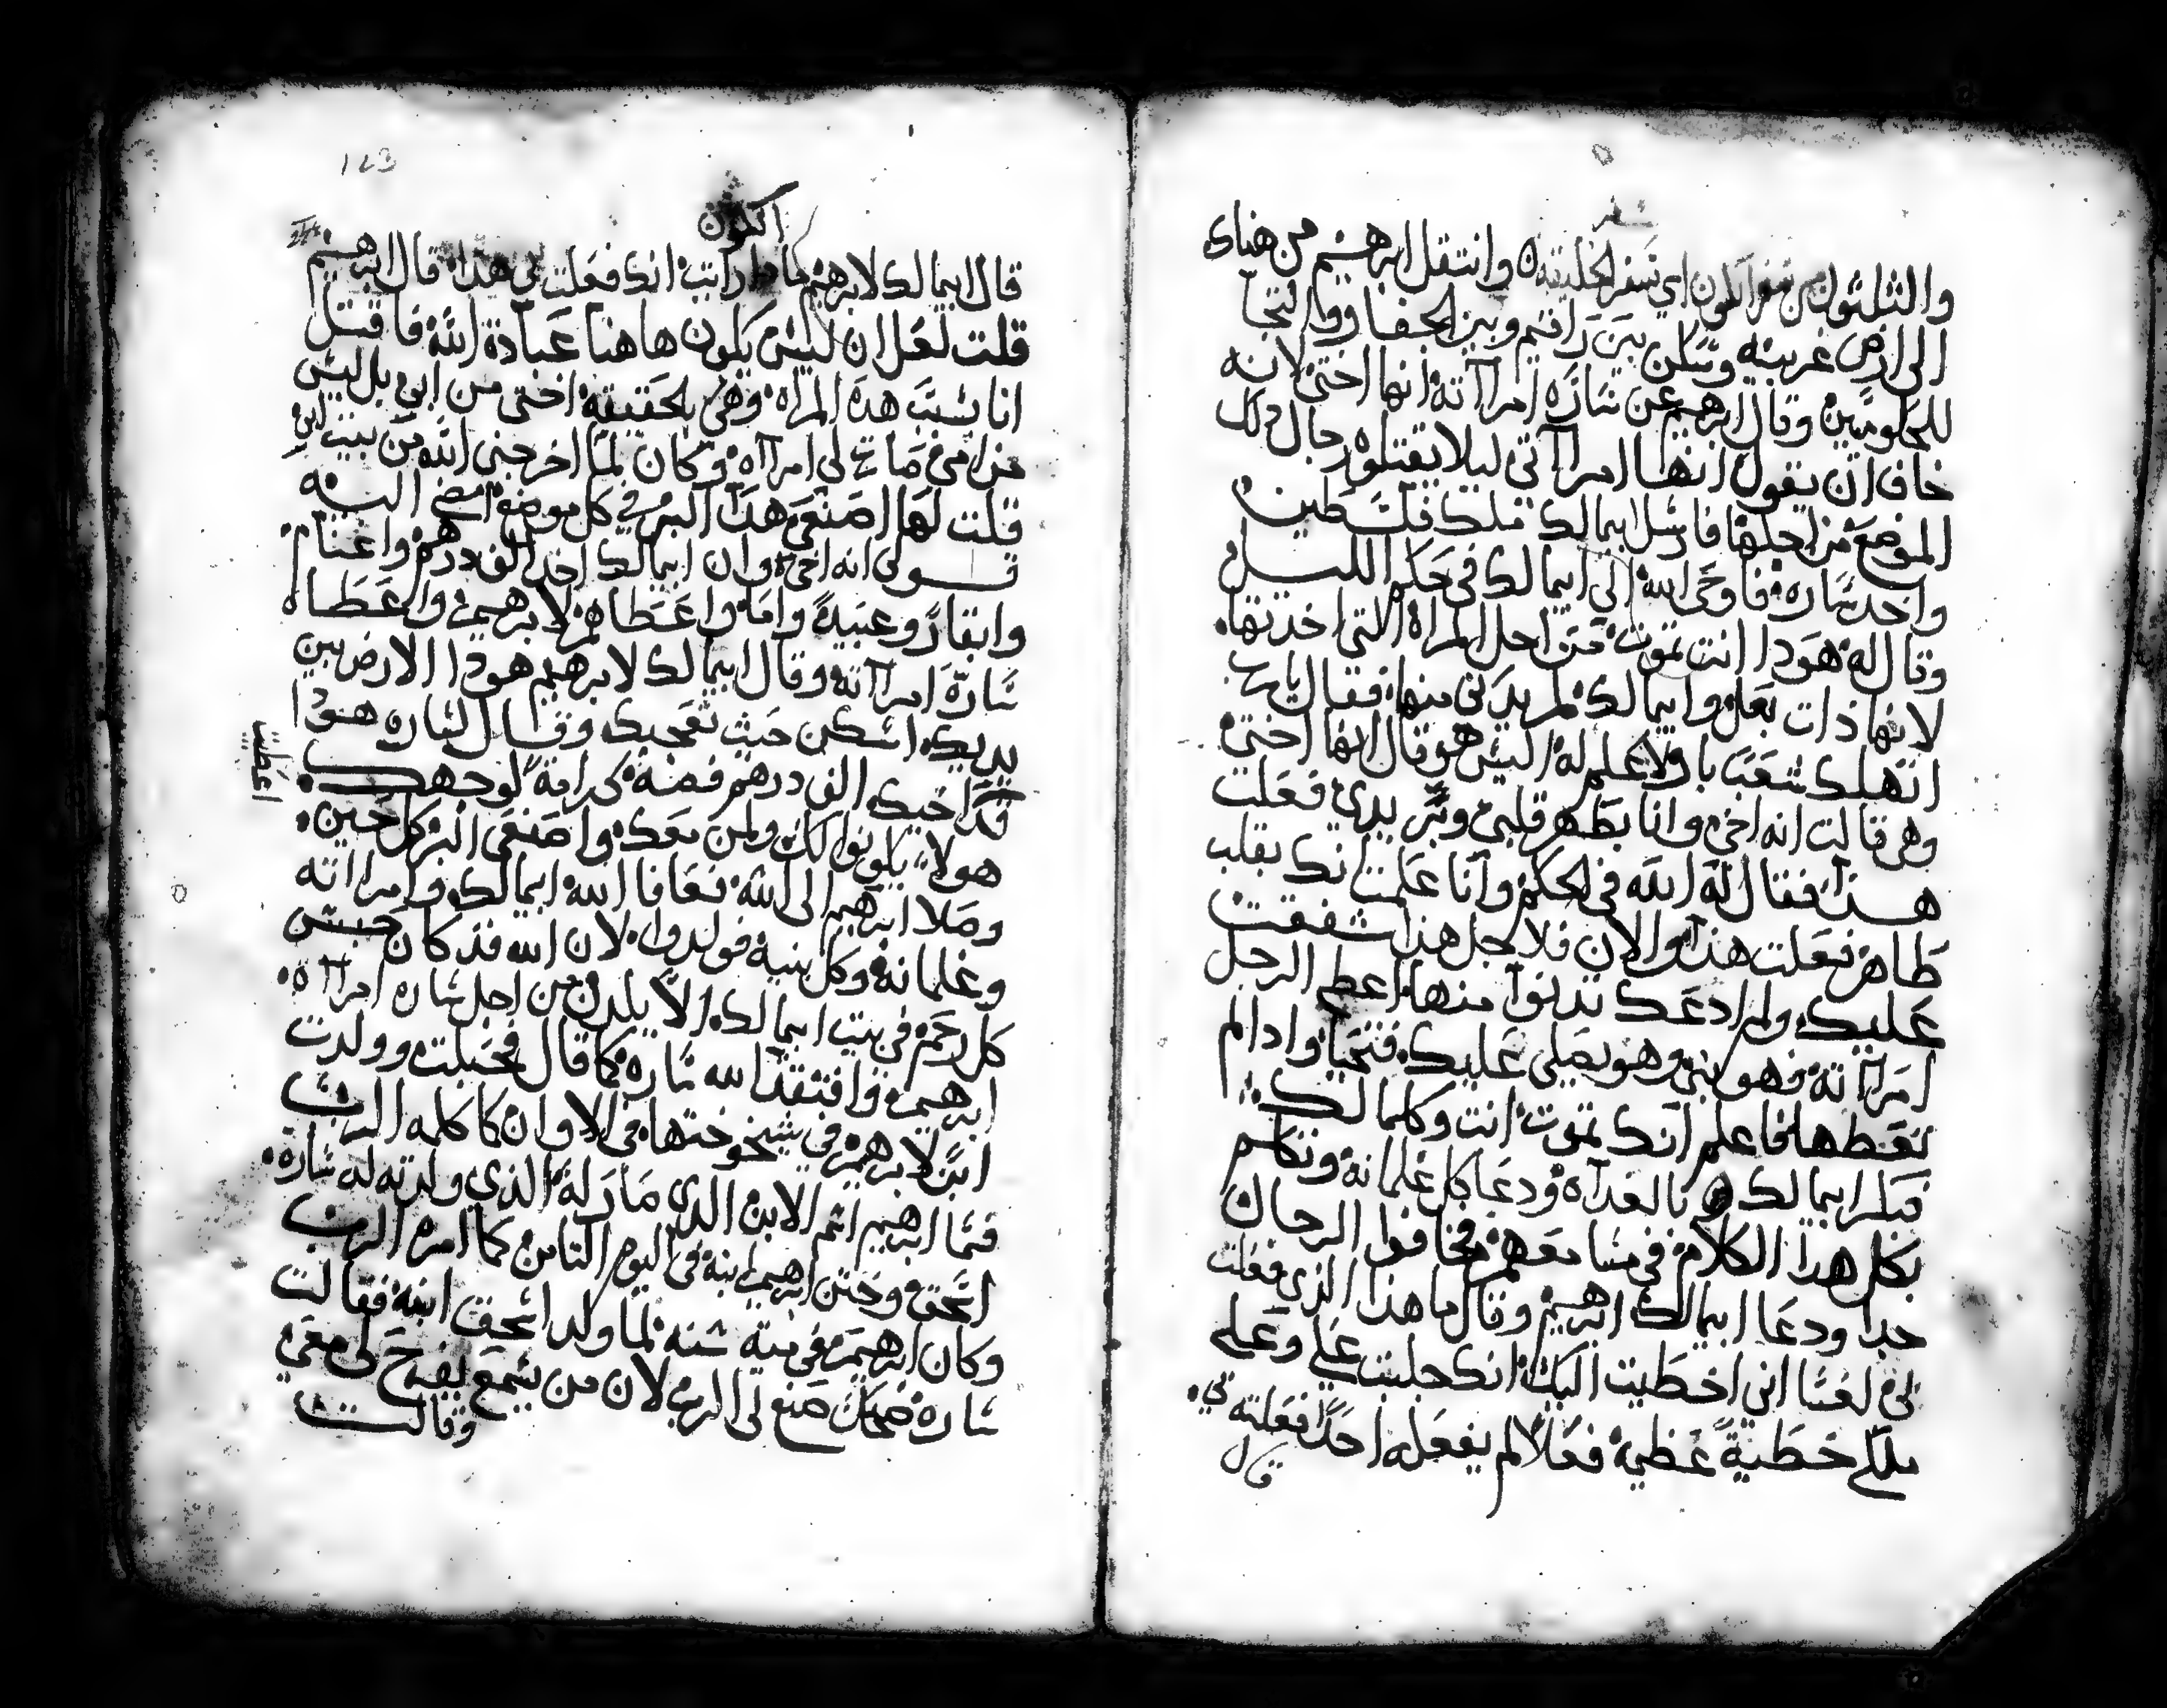 سفر
والثلثون من سفر اكلون اي سفر الخليقه ٥ وانتقل ابرهيم من هناك
الى ارض غربيه وسكن بين راقيم وبين الحفار ووا التجا
للخلوميين وقال ابرهيم عن ساره امرااته انها اختى لانه
خاف ان يقول انها امرااتي ليلا يقتلوه رجال ذلك
الموضع من اجلها فارسل ابيمالك ملك فلسطين
واخد ساره فاوحى الله الى ابيمالك في حكم الليل
وقال له هودا انت تموت من اجل المراه التي اخدتها
لانها ذات بعل وابيمالك لم يدنى منها فقال يارب
اتهلك شعبا بار ولا علم له اليس هو قال انها اختى
وهي قالت انه اخى وانا بطهر قلبى وبر يدي فعلت
هذا فقال له الله في الحكم وانا علمت انك بقلب
طاهر فعلت هذا والان فلاجل هذا شفقت
عليك ولم ادعك تدنوا منها اعطى الرجل
امرااته فهو نبى وهو يصلى عليك فتحيا وادا لم
تعطها فاعلم انك تموت انت وكلما لك
فبكر ابيمالك بالغداه ودعا كل غلمانه وتكلم
بكل هدا الكلام في مسامعهم فخافوا الرجال
جدا ودعا ابيمالك ابرهيم وقال ما هذا الذي فعلت
لى لعسا انى اخطيت اليك انك جلبت علي وعلى
ملكى خطية عظيمة فعلا لم يفعله احدا فعلته بي
قال
اكلون
قال ابيمالك لابرهيم مادا رايت انك فعلت بى هدا قال ابرهيم
قلت لعل ان ليس يكون هاهنا عبادة الله فاقتل
انا بسبب هذه المراه وهى بالحقيقة اختى من ابى بل ليس
من امى صارت لى امرااه وكان لما اخرجنى الله من بيت ابى
قلت لها اصنعى هدا البر في كل موضع امضى اليه
تقولى انه اخى وان ابيمالك اخد الف درهم واغنام
وابقار وعبيد واما واعطاهم لابرهيم واعطاه
ساره امرااته وقال ابيمالك لابرهيم هودا الارض بين
يديك اسكن حيث تعجبك وقال لساره هودا
قد اخيك الف درهم فضة كرامة لوجهك
اعطيت
هولاء يكونوا لك ولمن معك واصنعى البر كل حين
وصلا ابرهيم الى الله فعافا الله ابيمالك وامرااته
وغلمانه وكل بنيه فولدوا لان الله قد كان حبس
كل رحم في بيت ابيمالك الا يلدن من اجل ساره امرااة
ابرهيم وافتقد الله ساره كما قال فحبلت وولدت
ابنا لابرهيم في شيخوختها في الاوان كما كلمه الرب
فسما ابرهيم اسم الابن الذي صار له الذي ولدته له ساره
اسحق وختن ابرهيم ابنه في اليوم الثامن كما امره الرب
وكان ابرهيم في مية سنه لما ولد اسحق ابنه فقالت
ساره ضحك صنع لى الرب لان من يسمع يفرح لى معى
وقالت